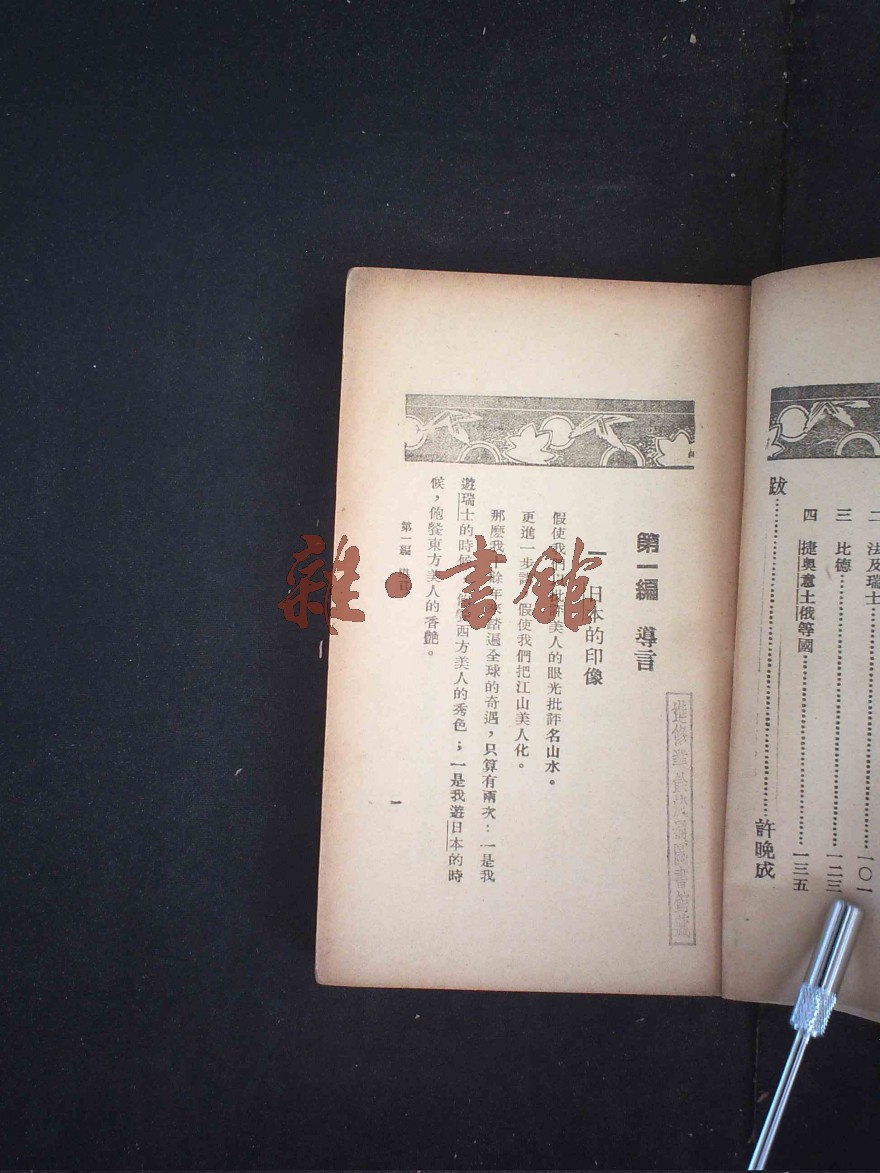 二 法及瑞士 一〇一
三 比德 一二三
四 捷奧意土俄等國 一三五
跋 許晚成
第一編 導言
一 日本的印像
假使我們以批評美人的眼光批評名山水。
更進一步講，假使我們把江山美人化。
那麽我十餘年來踏遍全球的奇遇，只算有兩次：一是我
遊瑞士的時候，飽餐西方美人的秀色；一是我遊日本的時
候，飽餐東方美人的香艷。
第一編 導言
一
雜·書館